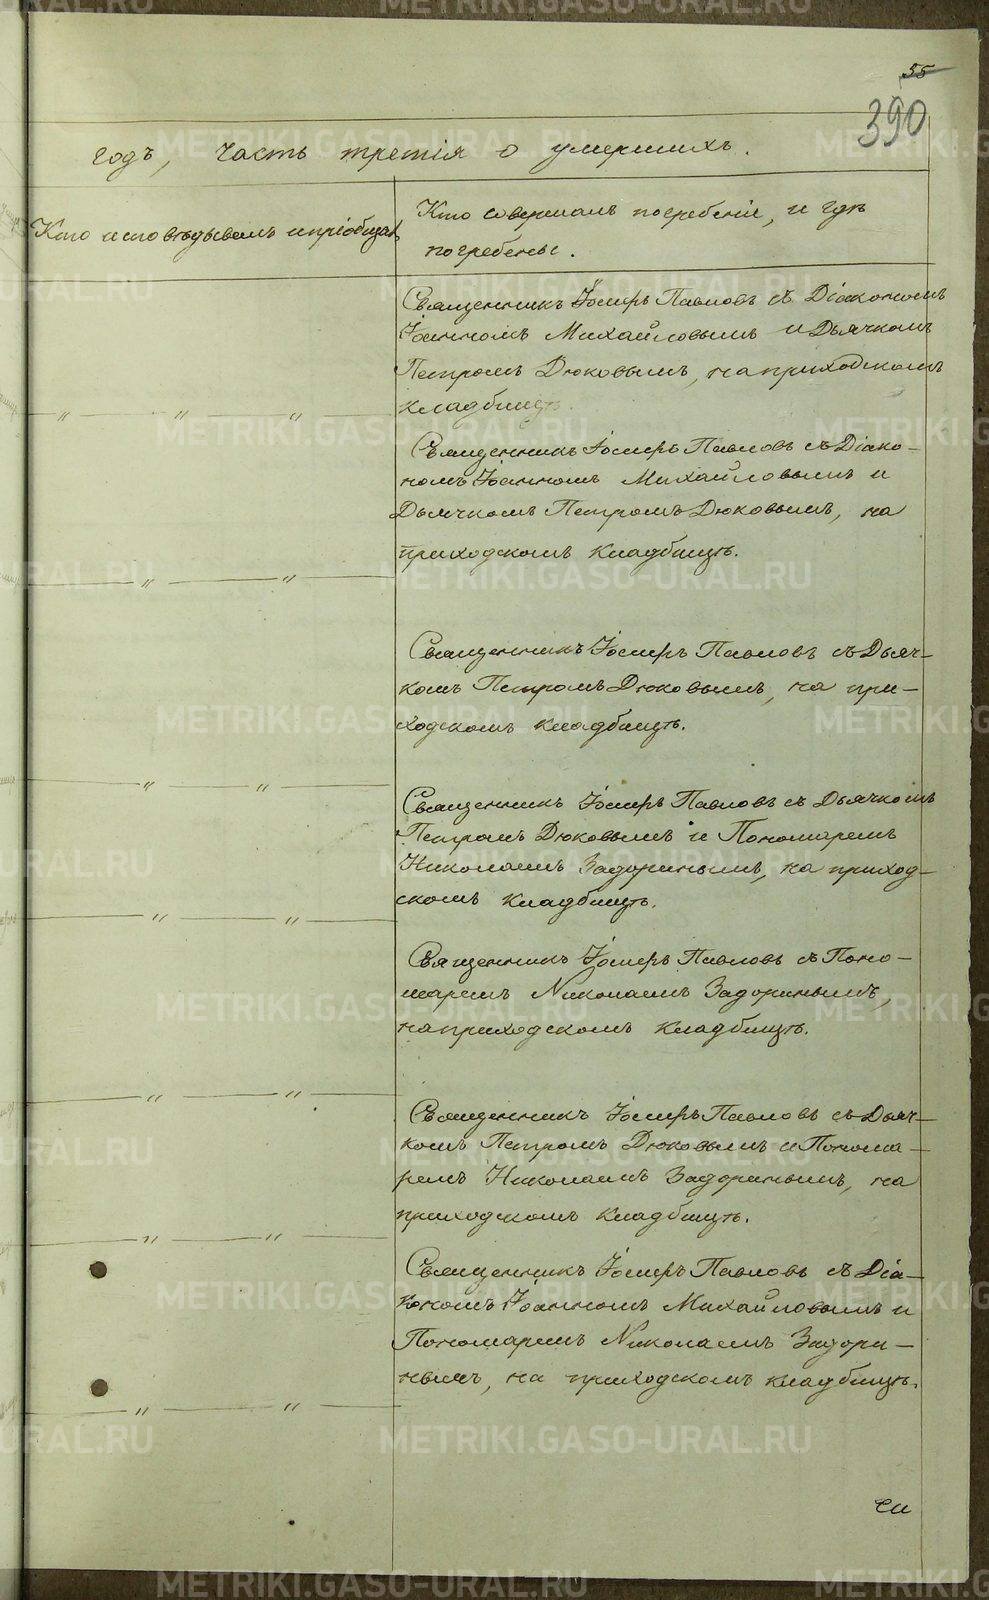 55
390
годъ, часть третія о умершихъ.
Кто исповѣдывалъ и пріобщалъ
Кто совершалъ погребеніе, и гдѣ
погребены.
Священникъ Іосифъ Павловъ съ Діакономъ
Іоанномъ Михайловымъ и Дьячкомъ
Петромъ Дюковымъ, на приходскомъ
кладбищѣ.
Священникъ Іосифъ Павловъ съ Діако-
номъ Іоанномъ Михайловымъ и
Дьячкомъ Петромъ Дюковымъ, на
приходскомъ кладбищѣ.
Священникъ Іосифъ Павловъ съ Дьяч-
комъ Петромъ Дюковымъ, на при-
ходскомъ кладбищѣ.
Священникъ Іосифъ Павловъ съ Дьячкомъ
Петромъ Дюковымъ и Пономаремъ
Николаемъ Задоринымъ, на приход-
скомъ кладбищѣ.
Священникъ Іосифъ Павловъ съ Поно-
маремъ Николаемъ Задоринымъ,
на приходскомъ кладбищѣ.
Священникъ Іосифъ Павловъ съ Дьяч-
комъ Петромъ Дюковымъ и Понома-
ремъ Николаемъ Задоринымъ, на
приходскомъ кладбищѣ.
Священникъ Іосифъ Павловъ съ Діа-
кономъ Іоанномъ Михайловымъ и
Пономаремъ Николаемъ Задори-
нымъ, на приходскомъ кладбищѣ.
METRIKI.GASO-URAL.RU